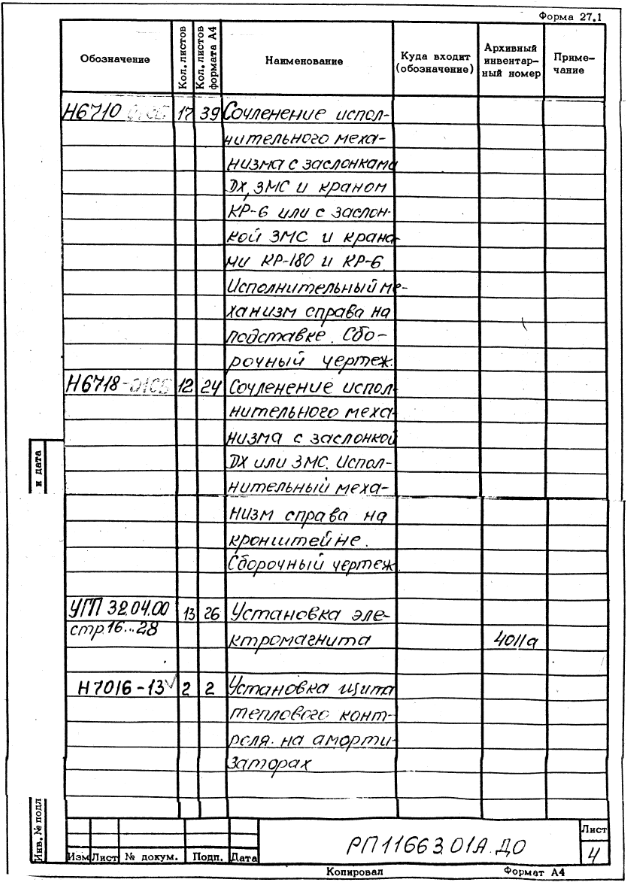 Форма 27.1
Обозначение Кол. листов Кол. листов формата А4 Наименование Куда входит (обозначение) Архивный инвентарный номер Примечание
Н6710 17 39 Сочленение испол-
нительного меха-
низма с заслонками
ДХ, ЗМС и краном
КР-6 или с заслон-
кой ЗМС и крана-
ми КР-180 и КР-6.
Исполнительный ме-
ханизм справа на
подставке. Сбо-
рочный чертеж.
Н6718-0100 12 24 Сочленение испол-
нительного меха-
низма с заслонкой
ДХ или ЗМС. Испол-
нительный меха-
низм справа на
кронштейне.
Сборочный чертеж.
УГП 32.04.00 13 26 Установка эле-
стр.16...28 ктромагнита 4011а
Н7016-13 2 2 Установка щита
теплового конт-
роля на аморти-
заторах
и дата
Инв. № подл
РП11663.01А.ДО
Лист
4
Изм Лист № докум. Подп. Дата
Копировал Формат А4